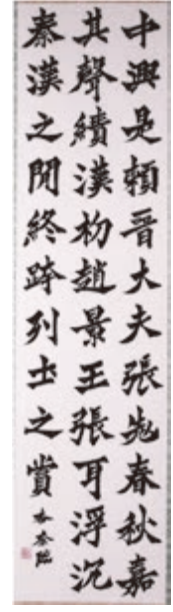 中興是賴晉大夫張老春秋嘉
其聲績漢初趙景王張耳浮沉
秦漢之間終跨列士之賞